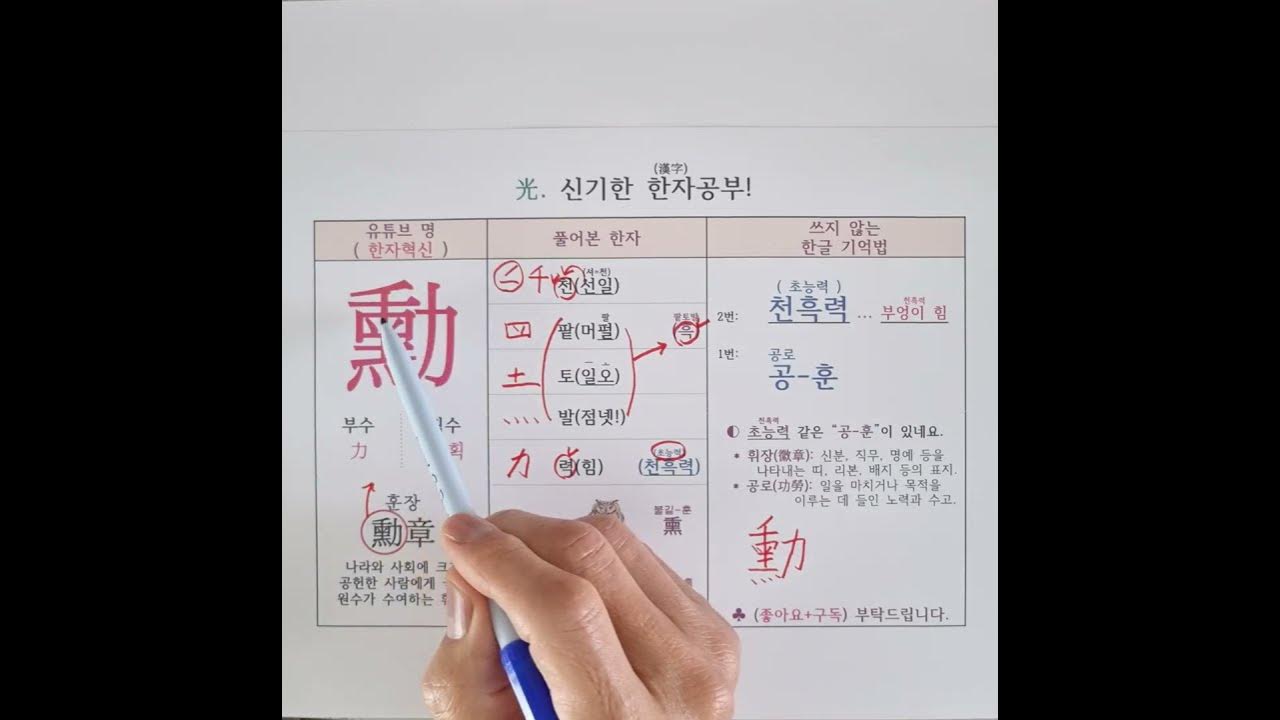 (漢字)
光. 신기한 한자공부!
유튜브 명
( 한자혁신 )
풀어본 한자
쓰지 않는
한글 기억법
勳
부수
力
획
훈장
勳章
나라와 사회에
공헌한 사람에게
원수가 수여하는
千
(셔=천)
천(선일)
팔
팥(머펄)
팥토발
흑
土
토(일오)
발(점넷!)
力
력(힘)
(초능력)
(천흑력)
불길-훈
熏
( 초능력 )
2번: 천흑력 ... 부엉이 힘
천흑력
1번: 공로
공-훈
천흑력
◐ 초능력 같은 “공-훈”이 있네요.
* 휘장(徽章): 신분, 직무, 명예 등을
나타내는 띠, 리본, 배지 등의 표지.
* 공로(功勞): 일을 마치거나 목적을
이루는 데 들인 노력과 수고.
勳
♣ (좋아요+구독) 부탁드립니다.